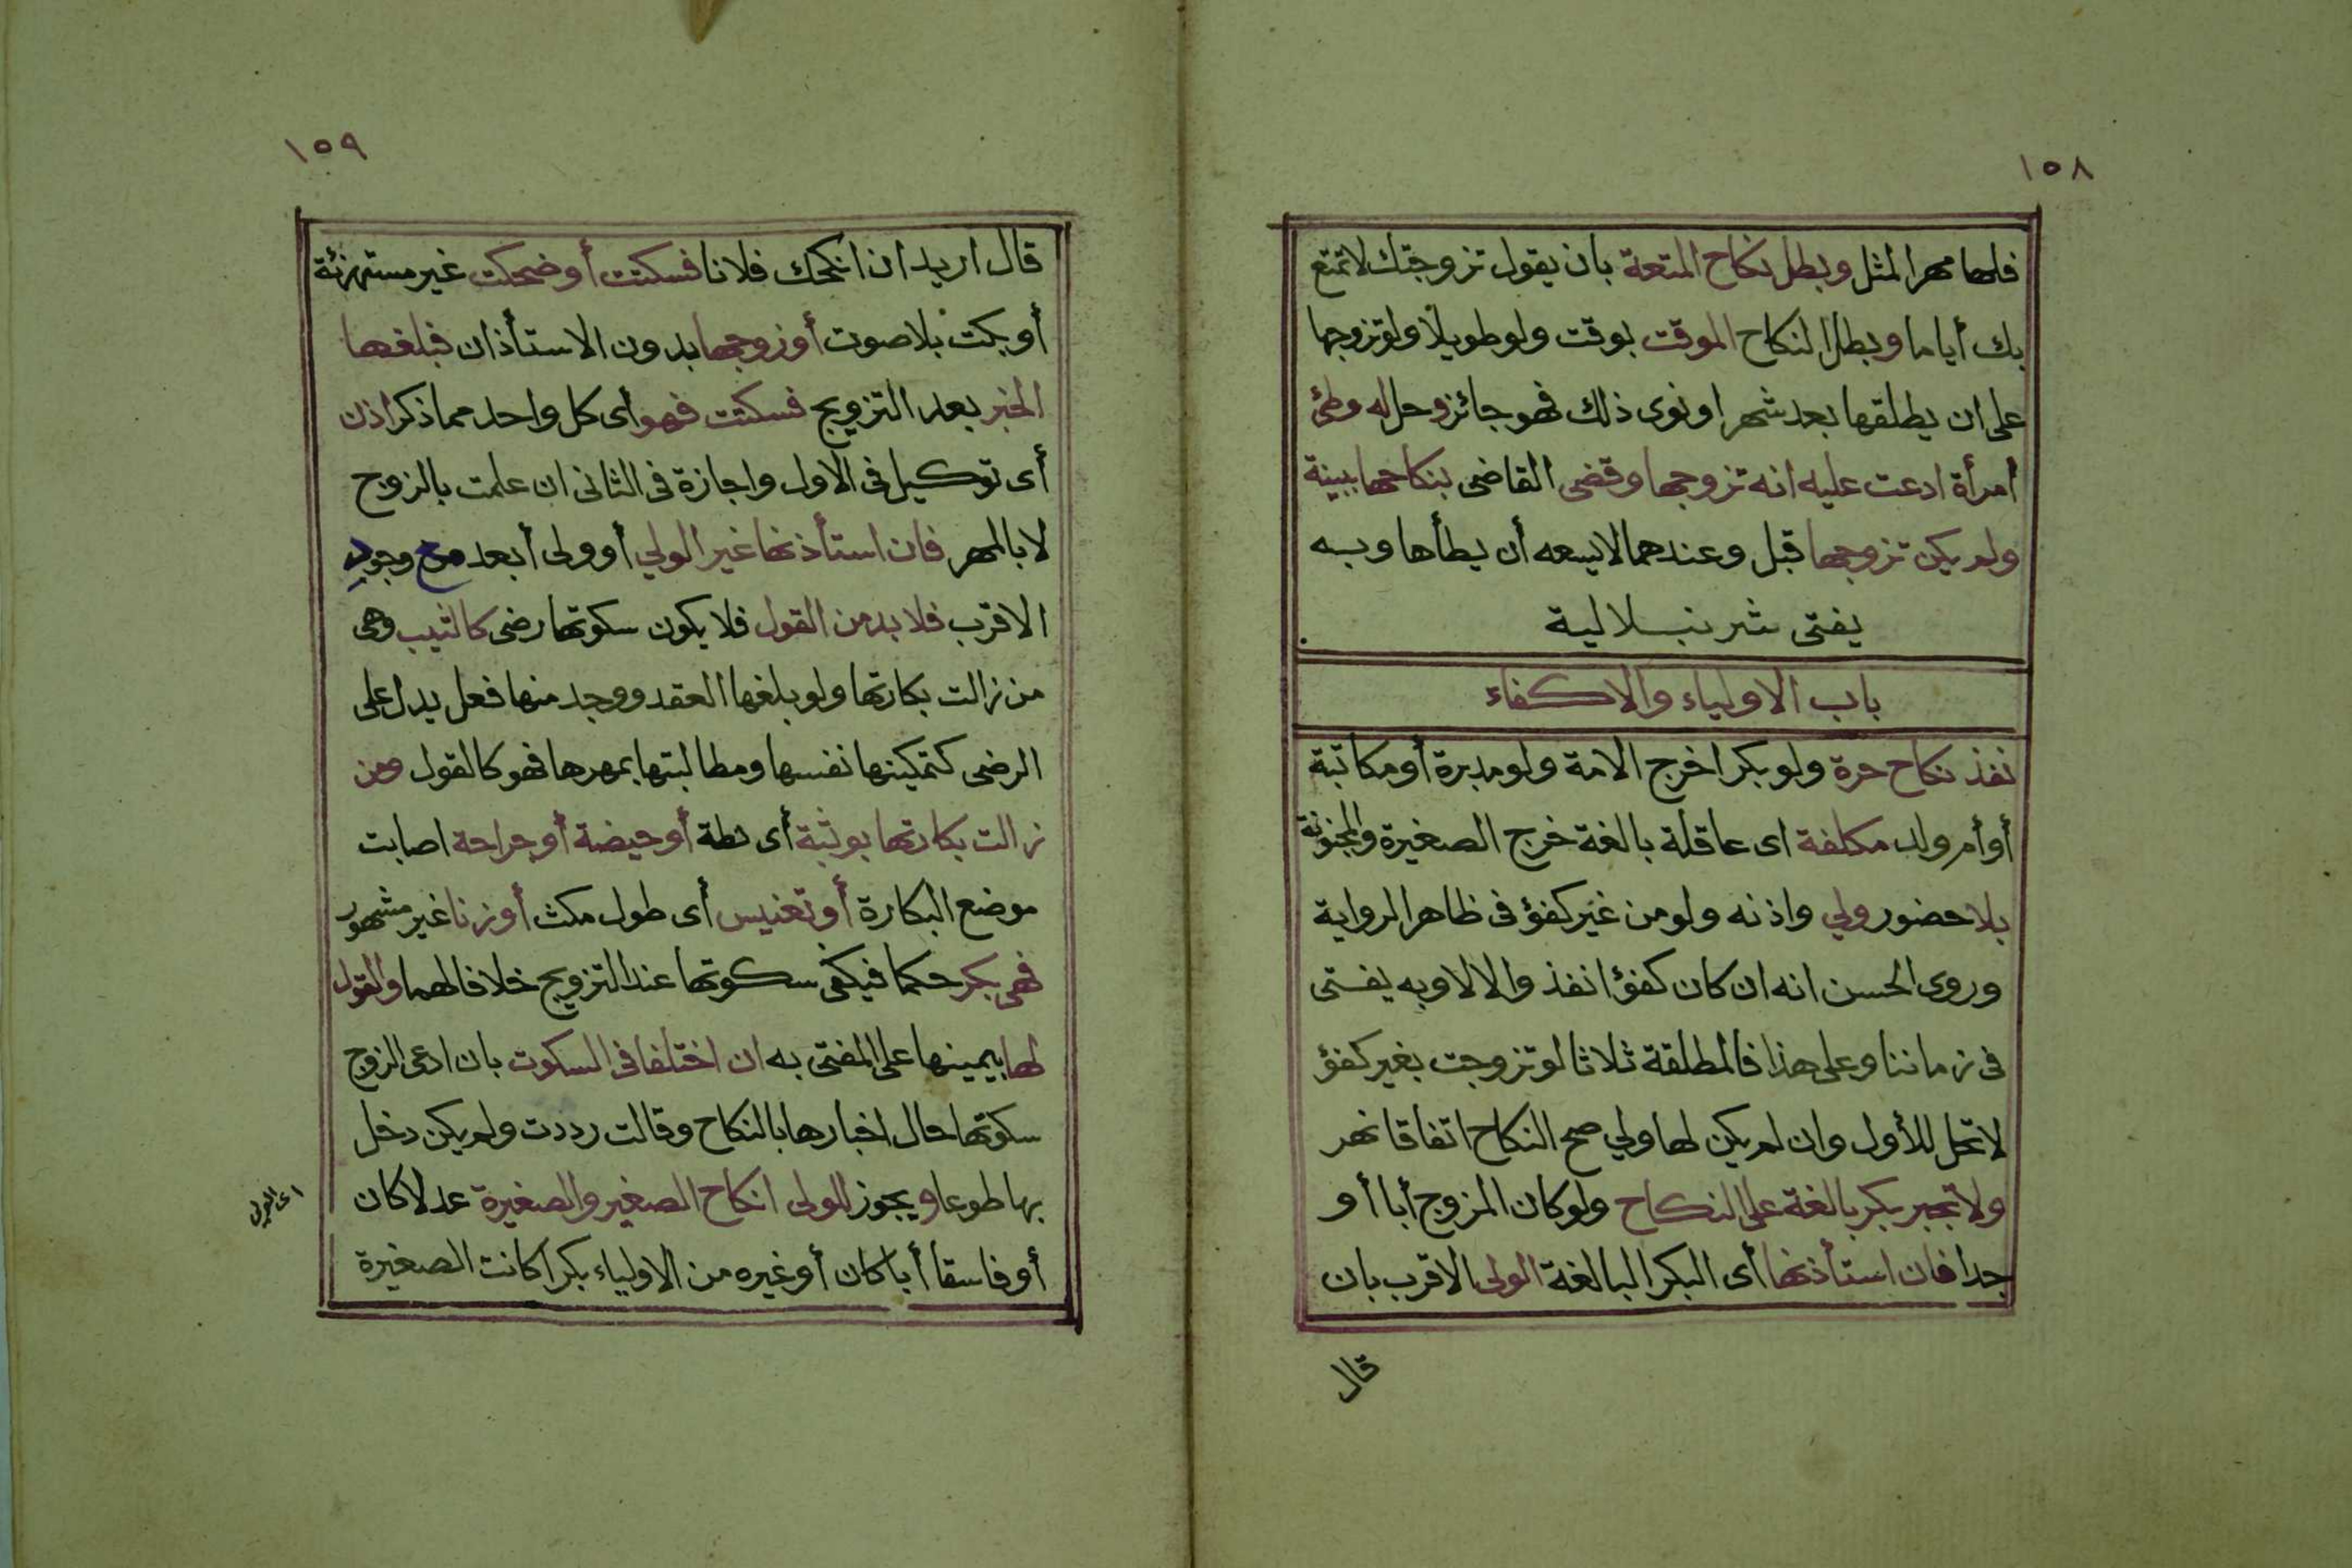 ١٥٨
فلها مهر المثل وبطل نكاح المتعة بان يقول تزوجتك لاتمتع
بك أياما وبطل النكاح الموقت بوقت ولو طويلا ولو تزوجها
على ان يطلقها بعد شهر او نوى ذلك فهو جائز وحل له وطئ
امرأة ادعت عليه انه تزوجها وقضى القاضى بنكاحها ببينة
ولم يكن تزوجها قبل وعندهما لا يسعه أن يطأها وبه
يفتى شرنبلالية
باب الاولياء والاكفاء
نفذ نكاح حرة ولو بكرا خرج الامة ولو مدبرة أو مكاتبة
أو أم ولد مكلفة اى عاقلة بالغة خرج الصغيرة والمجنونة
بلا حضور ولي واذنه ولو من غير كفؤ فى ظاهر الرواية
وروى الحسن انه ان كان كفؤا نفذ والا لا وبه يفتى
فى زماننا وعلى هذا فالمطلقة ثلاثا لو تزوجت بغير كفؤ
لا تحل للأول وان لم يكن لها ولي صح النكاح اتفاقا نهر
ولا تجبر بكر بالغة على النكاح ولو كان المزوج أبا أو
جدا فان استأذنها أى البكر البالغة الولى الاقرب بان
قال
١٥٩
قال اريد ان انكحك فلانا فسكتت أو ضحكت غير مستهزئة
أو بكت بلا صوت أو زوجها بدون الاستأذان فبلغها
الخبر بعد التزويج فسكتت فهو أى كل واحد مما ذكر اذن
أى توكيل فى الاول واجازة فى الثانى ان علمت بالزوج
لا بالمهر فان استأذنها غير الولي أو ولى أبعد مع وجود
الاقرب فلا بد من القول فلا يكون سكوتها رضى كالثيب وهى
من زالت بكارتها ولو بلغها العقد ووجد منها فعل يدل على
الرضى كتمكينها نفسها ومطالبتها بمهرها فهو كالقول ومن
زالت بكارتها بوثبة أى نطة أو حيضة أو جراحة اصابت
موضع البكارة أو تعنيس أى طول مكث أو زنا غير مشهور
فهى بكر حكما فيكفى سكوتها عند التزويج خلافا لهما والقول
لها بيمينها على المفتى به ان اختلفا فى السكوت بان ادعى الزوج
سكوتها حال اخبارها بالنكاح وقالت رددت ولم يكن دخل
بها طوعا ويجوز للولى انكاح الصغير والصغيرة عدلا كان
أو فاسقا أبا كان أو غيره من الاولياء بكرا كانت الصغيرة